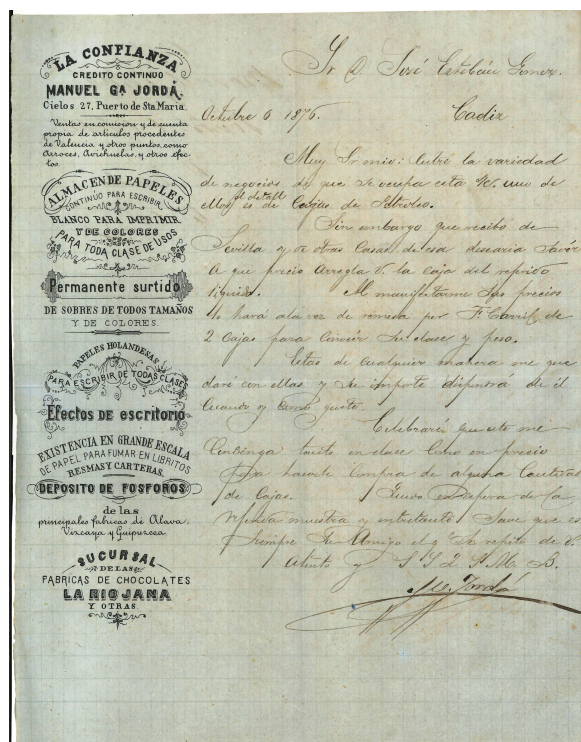 LA CONFIANZA
CREDITO CONTINUO
MANUEL Gª JORDÁ,
Cielos 27, Puerto de Sta Maria.
Ventas en comision y de cuenta
propia de articulos procedentes
de Valencia y otros puntos, como
Arroces, Avichuelas, y otros efec-
tos.
ALMACEN DE PAPELES
CONTÍNUO PARA ESCRIBIR,
BLANCO PARA IMPRIMIR
Y DE COLORES
PARA TODA CLASE DE USOS
Permanente surtido
DE SOBRES DE TODOS TAMAÑOS
Y DE COLORES.
PAPELES HOLANDESAS
PARA ESCRIBIR DE TODAS CLASES
Efectos de escritorio
EXISTENCIA EN GRANDE ESCALA
DE PAPEL PARA FUMAR EN LIBRITOS
RESMAS Y CARTERAS.
DEPOSITO DE FOSFOROS
de las
principales fabricas de Alava,
Vizcaya y Guipuzcoa.
SUCURSAL
DE LAS
FABRICAS DE CHOCOLATES
LA RIOJANA
Y OTRAS.
Sr. D. José Esteban Gomez.
Octubre 6 1876. Cadiz
Muy Sr mio: Entre la variedad
de negocios de que se ocupa esta uno de
ellos es al detall de Cajas de Petroleo.
Sin embargo que recibo de
Sevilla y de otras Casas de esa desearia
A que precio arregla V. la caja del referido
liquido. Al manifestarme sus precios
hará a la vez de remesa por F. Carril de
2 Cajas para conocer su clase y peso.
Estas de cualquier manera me que
daré con ellas y su importe dispondra de él
cuando y como guste.
Celebraré que me
Convenga tanto en clase como en precio
Pa hacerle compra de alguna Cantidad
de Cajas. en espera de la
referida muestra y entretanto sabe que es
siempre su Amigo el q se repite de V.
Atento y S S Q S. M. B.
Jordá